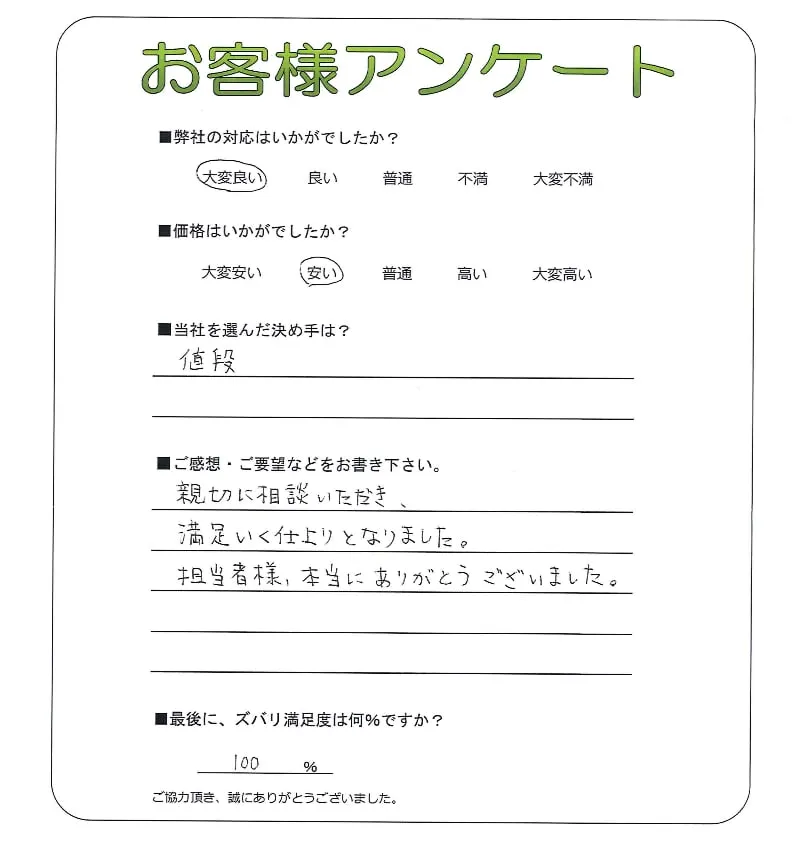 お客様アンケート
■弊社の対応はいかがでしたか？
大変良い 良い 普通 不満 大変不満
■価格はいかがでしたか？
大変安い 安い 普通 高い 大変高い
■当社を選んだ決め手は？
値段
■ご感想・ご要望などをお書き下さい。
親切に相談いただき、
満足いく仕上りとなりました。
担当者様、本当にありがとうございました。
■最後に、ズバリ満足度は何%ですか？
100 %
ご協力頂き、誠にありがとうございました。